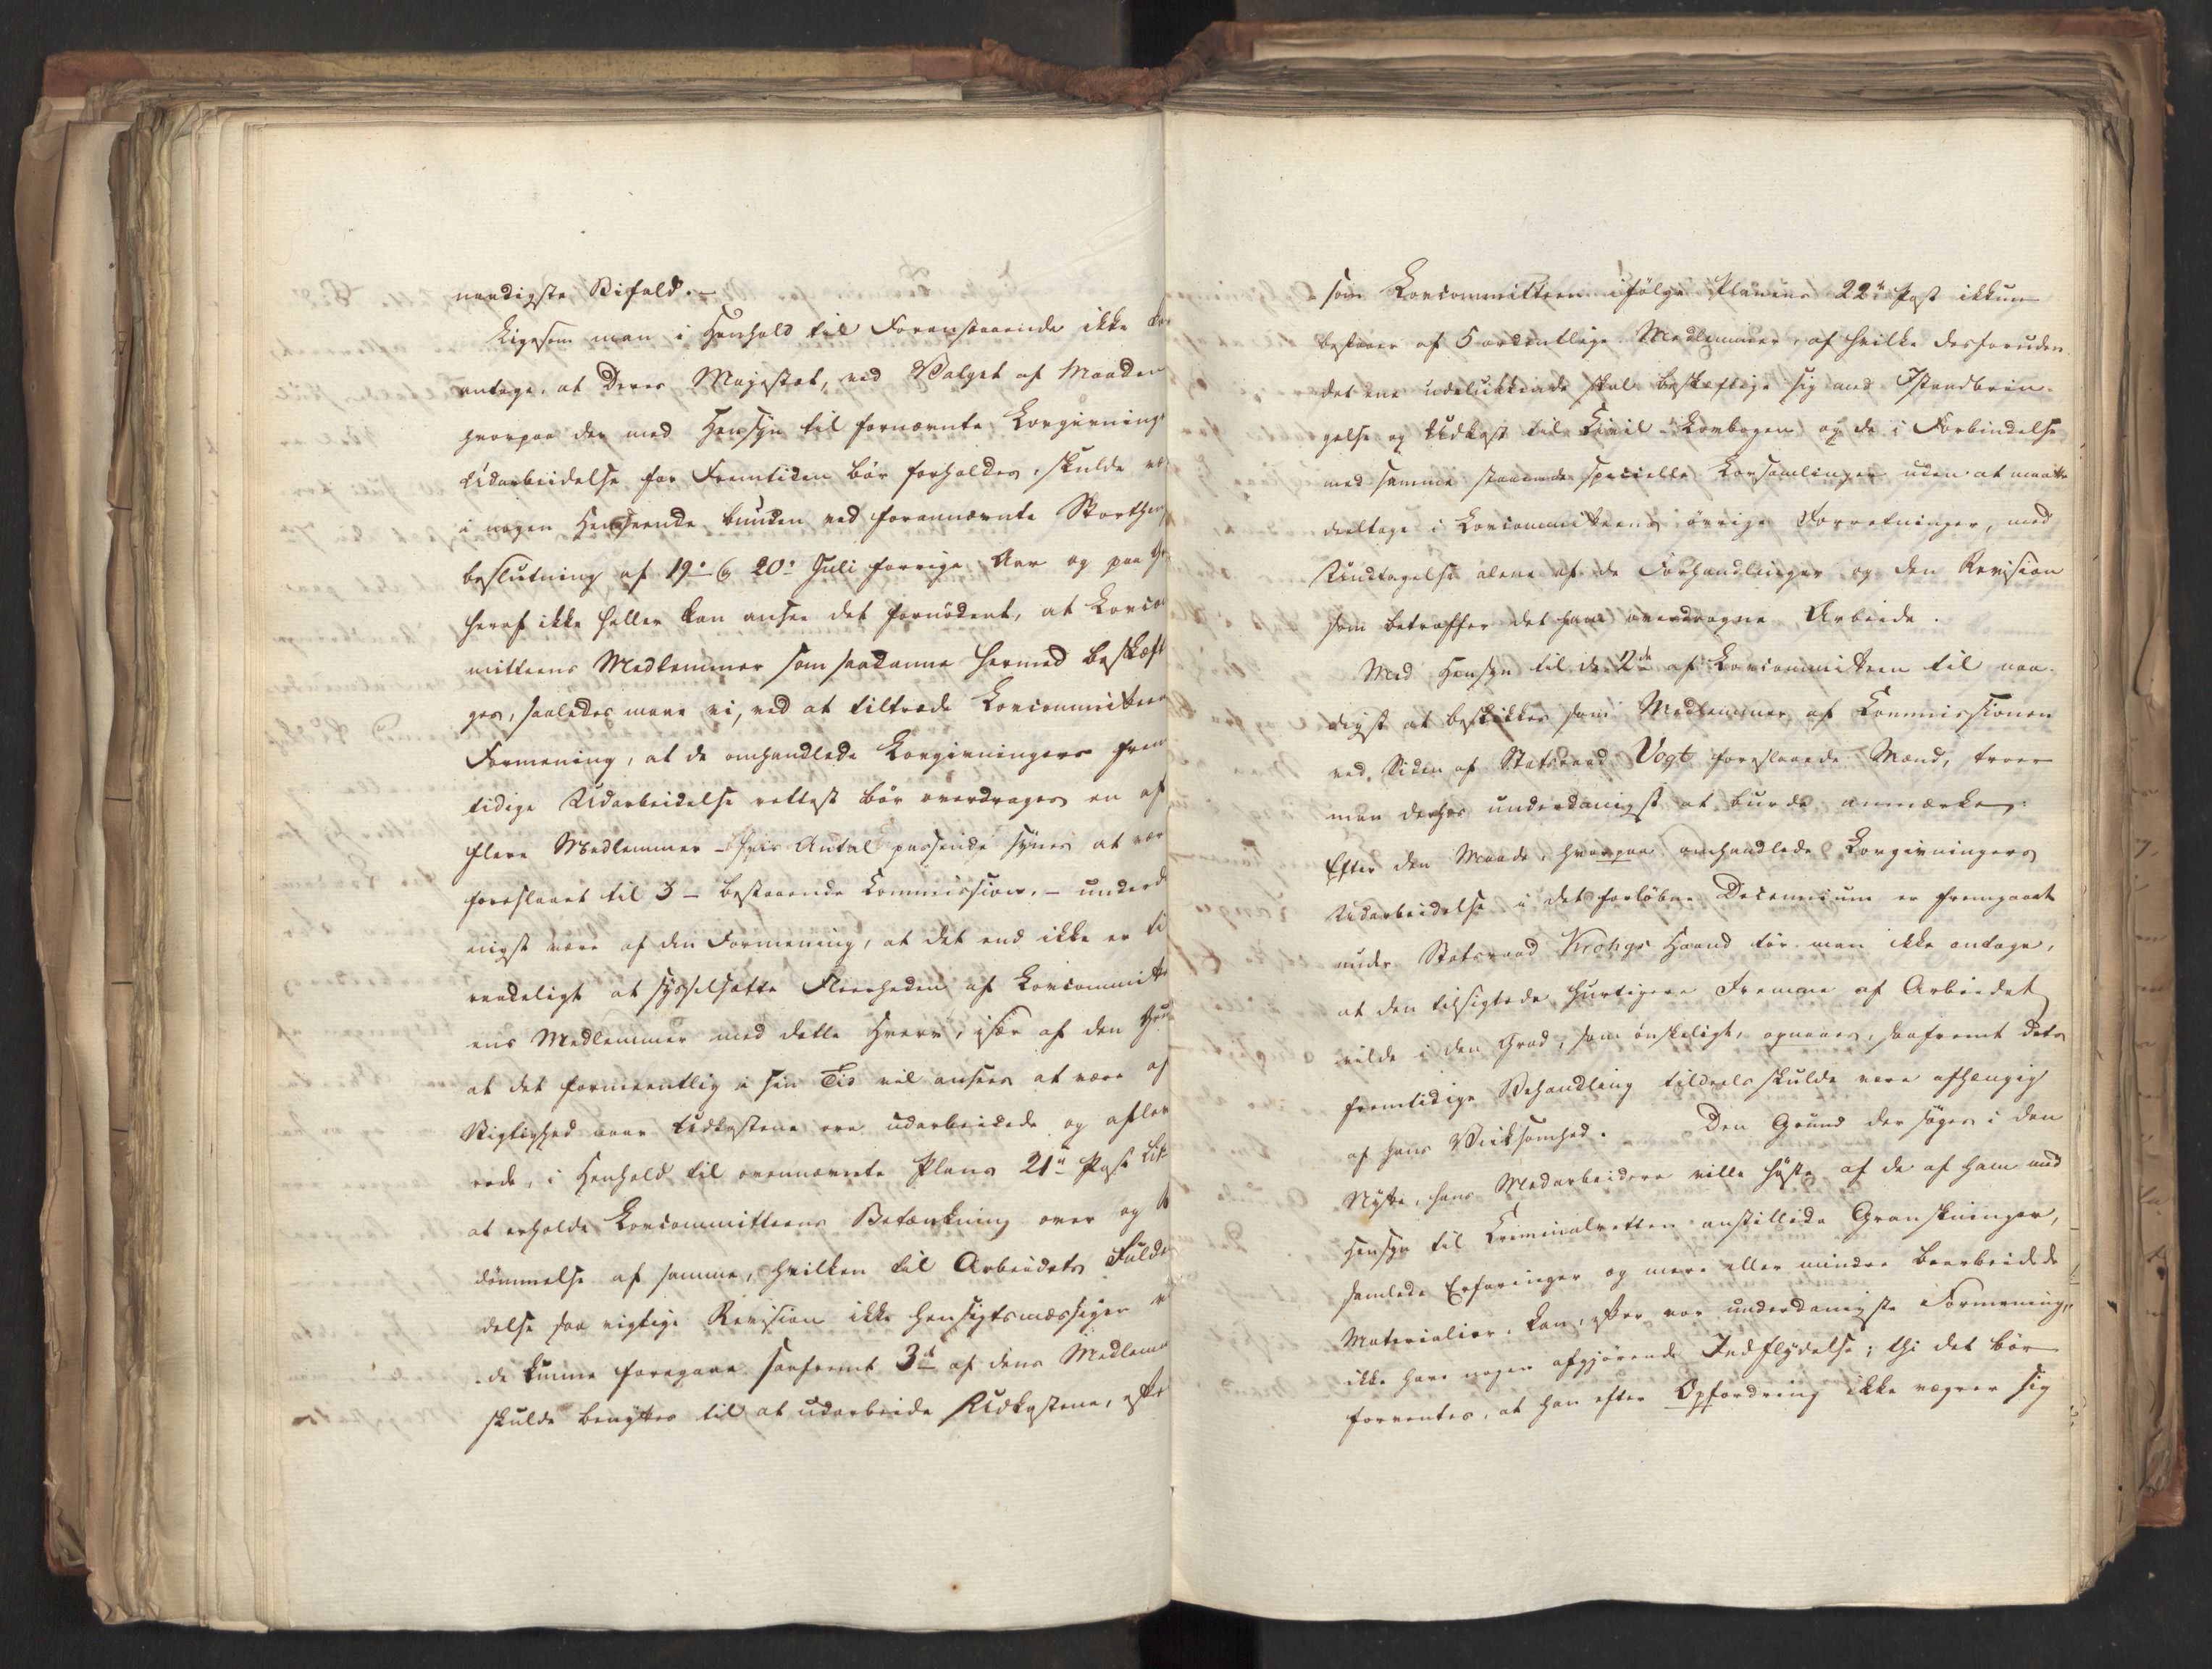 naadigste Bifald.-
Ligesom man i Henhold til Foranstaaende ikke kan
antage, at Deres Majestæt, ved Valget af Maaden
hvorpaa der med Hensyn til fornævnte Lovgivnings
Udarbeidelse for Fremtiden bör forholdes, skulde være
i nogen Henseende bunden ved forannævnte Storthings
beslutning af 19de & 20de Juli forrige Aar og paa Gr
heraf ikke heller kan ansee det fornödent, at Lovcom
mitteens Medlemmer som saadanne hermed beskæfti
ges, saaledes maae vi, ved at tiltræde Lovcommitteens
Formening, at de omhandlede Lovgivningers frem
tidige Udarbeidelse rettest bör overdrages en af
flere Medlemmer - hvis Antal passende synes at være
foreslaaet til 3 - bestaaende Commission, - underda
nigst være af den Formening, at det end ikke er ti
raadeligt at sysselsætte Fleerheden af Lovcommitte
ens Medlemmer med dette Hverv, især af den Grund
at det formeentlig i sin Tid vil ansees at være af
Vigtighed naar Udkastene ere udarbeidede og aflev
rede, i Henhold til ovennævnte Plans 21de Post Litr
at erholde Lovcommitteens Betænkning over og Be
dömmelse af samme, hvilken til Arbeidets Fulden
delse saa vigtige Revision ikke hensigtsmæssigen vil
de kunne foregaae saafremt 3de af dens Medlemmer
skulde benyttes til at udarbeide Udkastene, efter
som Lovcommitteen ifölge Planens 22de Post ikkun
bestaaer af 5 ordentlige Medlemmer, af hvilke desforuden
det ene udelukkende skal beskæftige sig med Istandbrin-
gelse og Udkast til Civil-Lovbogen og de i Forbindelse
med samme staaende specielle Lovsamlinger uden at maatte
deeltage i Lovcommitteens övrige Forretninger, med
Undtagelse alene af de Forhandlinger og den Revision
som betræffer det ham overdragne Arbeide.
Med Hensyn til de 2de af Lovcommitteen til naa-
digst at beskikkes som Medlemmer af Commissionen
ved Siden af Statsraad Vogt foreslaaede Mænd, troer
man derhos underdanigst at burde anmærke:
Efter den Maade, hvorpaa omhandlede Lovgivningers
Udarbeidelse i det forlöbne Decennium er fremgaaet
under Statsraad Krohgs Haand tör man ikke antage,
at den tilsigtede hurtigere Fremme af Arbeidet
vilde i den Grad, som önskeligt, opnaaes, saafremt dets
fremtidige Behandling tildeels skulde være afhængig
af hans Virksomhed. Den Grund der söges i den
Nytte, hans Medarbeidere ville höste af de af ham med
Hensyn til Criminalretten anstillede Granskninger,
samlede Erfaringer og mere eller mindre bearbeidede
Materialier, kan, efter vor underdanigste Formening,
ikke have nogen afgjörende Indflydelse; thi det bör
forventes, at han efter Opfordring ikke vægrer sig